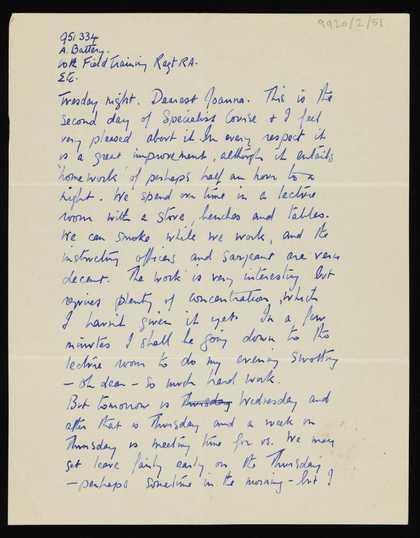 9920/2/51
951334
A. Battery.
Field Training Regt RA.
Tuesday night. Dearest Joanna. This is the
second day of Specialist Course & I feel
very pleased about it. In every respect it
is a great improvement, although it entails
homework of perhaps half an hour to a
night. We spend our time in a lecture
room with a stove, benches and tables.
We can smoke while we work, and the
instructing officers and sargeant are very
decent. The work is very interesting but
requires plenty of concentration, which
I havn't given it yet. In a few
minutes I shall be going down to the
lecture room to do my evening swotting
– oh dear – so much hard work.
But tomorrow is Thursday Wednesday and
after that is Thursday and a week on
Thursday is meeting time for us. We may
get leave fairly early on the Thursday
– perhaps sometime in the morning – but I